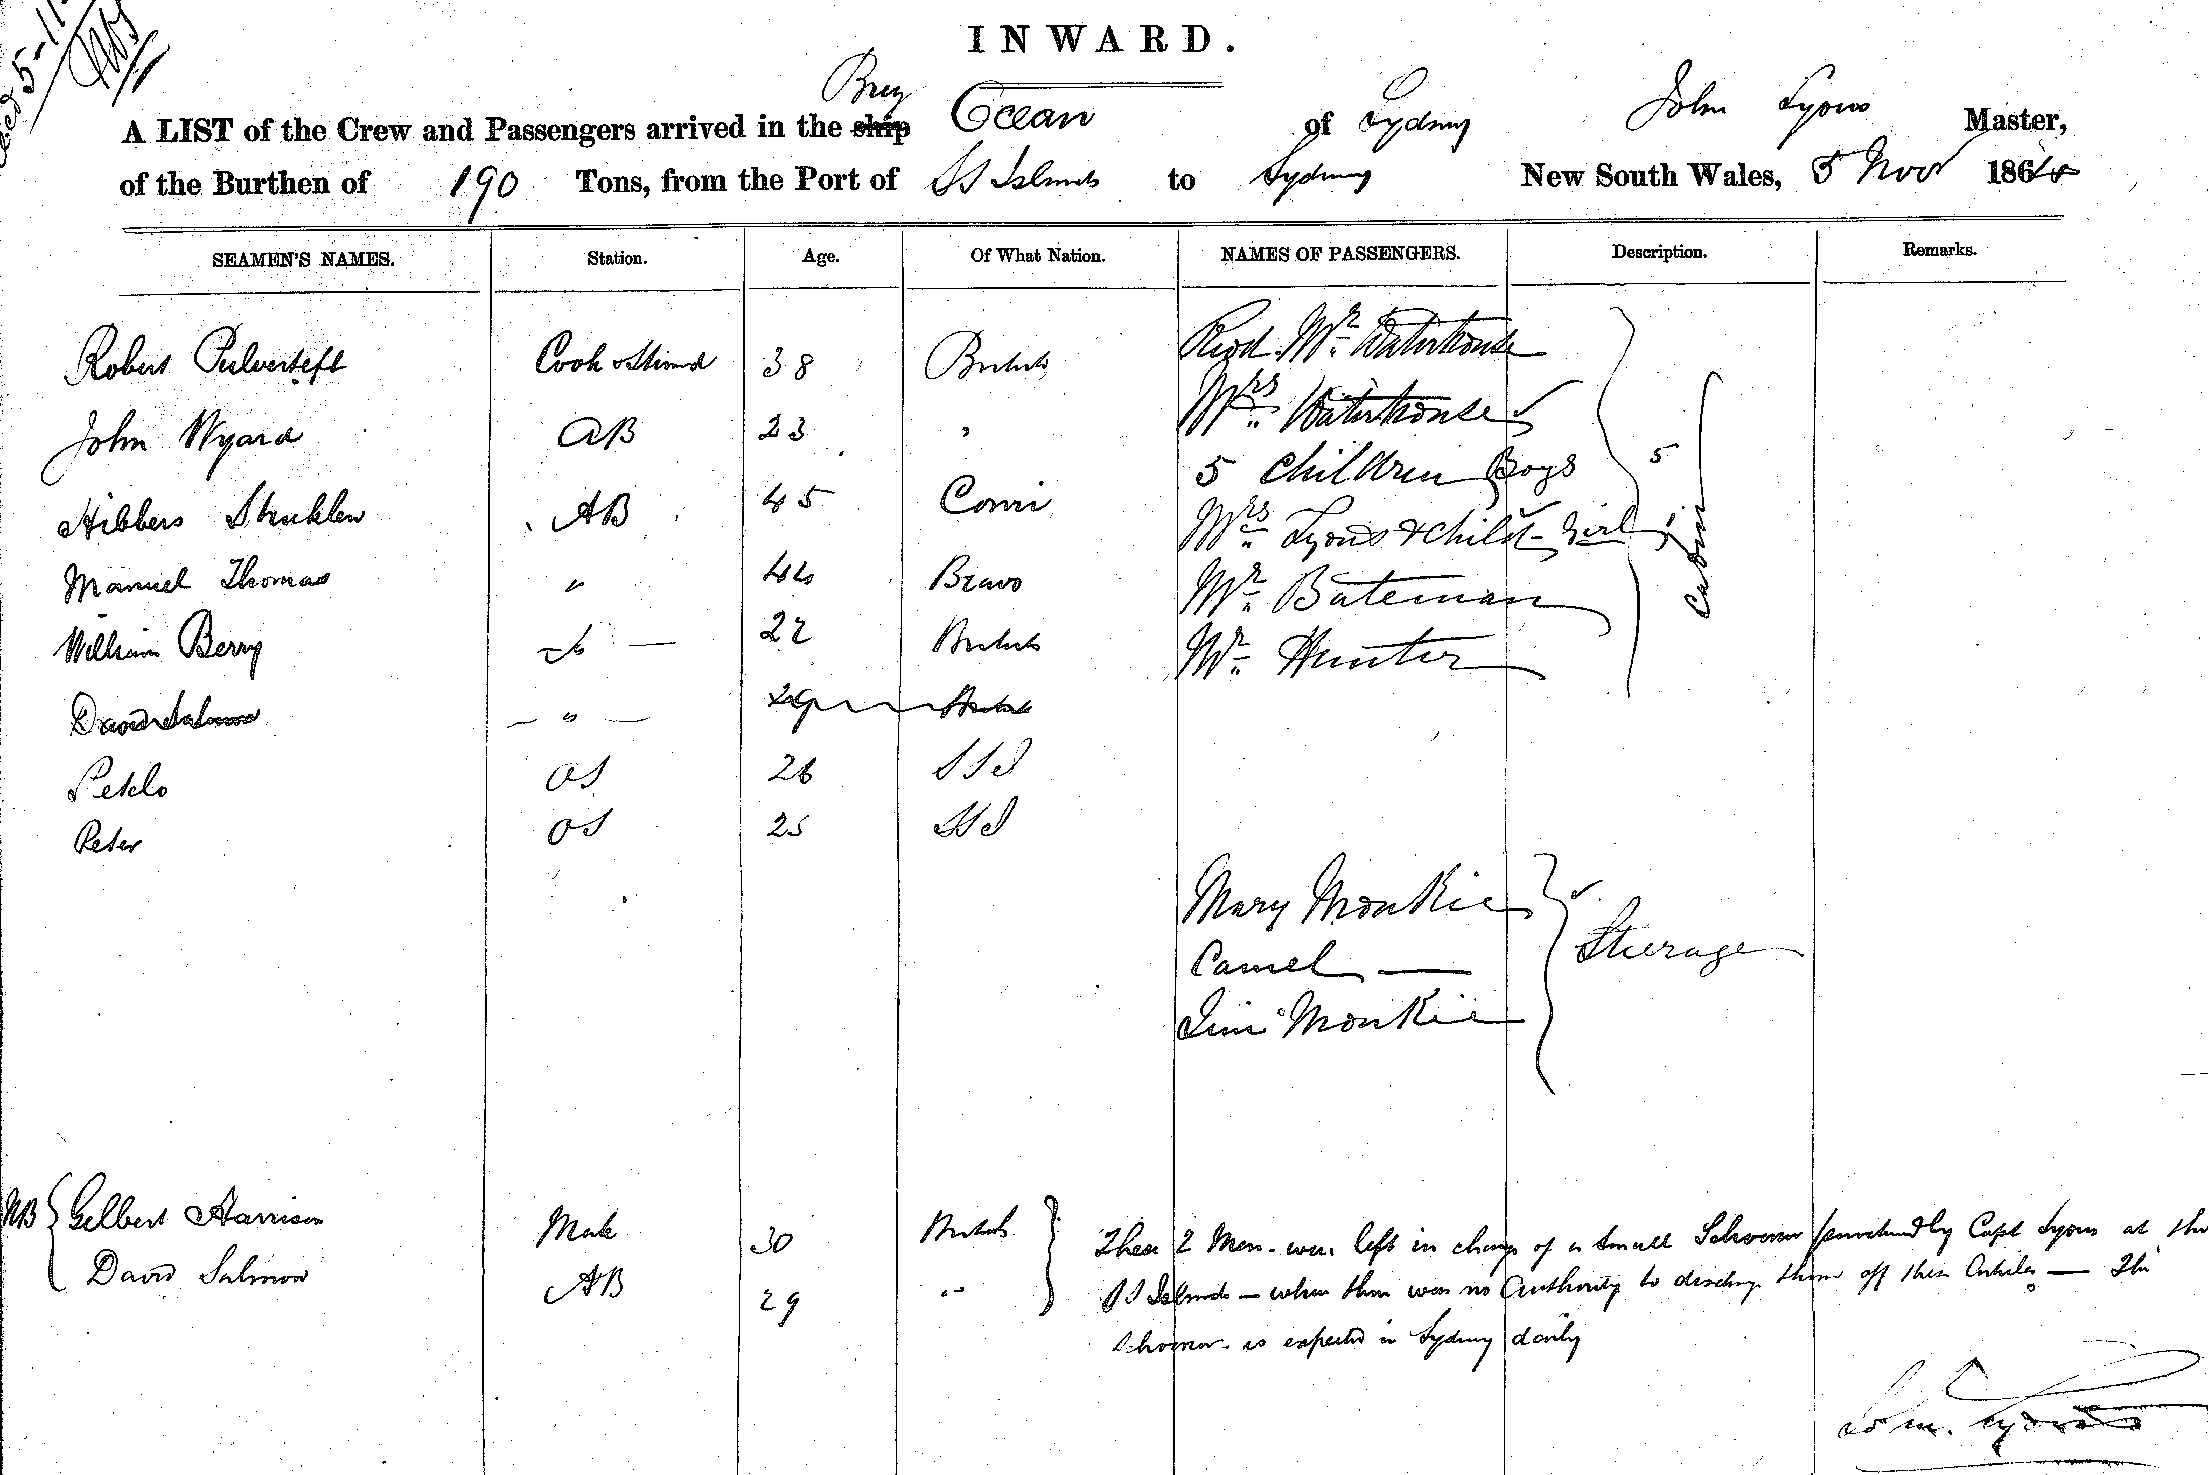 INWARD.
Brig
A LIST of the Crew and Passengers arrived in the ship Ocean of Sydney John Lyons Master,
of the Burthen of 190 Tons, from the Port of SS Islands to Sydney New South Wales, 5 Nov 1864
SEAMEN'S NAMES. Station. Age. Of What Nation. NAMES OF PASSENGERS. Description. Remarks.
Robert Pulvertaft Cook & Steward 38 British Revd. Mr. Waterhouse
John Wyard AB 23 " Mrs. Waterhouse
5 Children Boys 5
AB 45 Mrs. Lyons & Child - Girl 1 Cabin
Manuel Thomas " 44 Bravo Mr. Bateman
William Berry 22 British Mr. Hunter
David Salmon — " — 29 British
OS 26 SSI
Peter OS 25 SSI
Mary Monkie
Camel — Steerage
Jim Monkie
NB Gilbert Harrison Mate 30 British These 2 Men were left in charge of a small Schooner purchased by Capt Lyons at the
David Salmon AB 29 " SS Islands — where there was no Authority to discharge them off their Articles — The
Schooner is expected in Sydney daily
Jn. Lyons